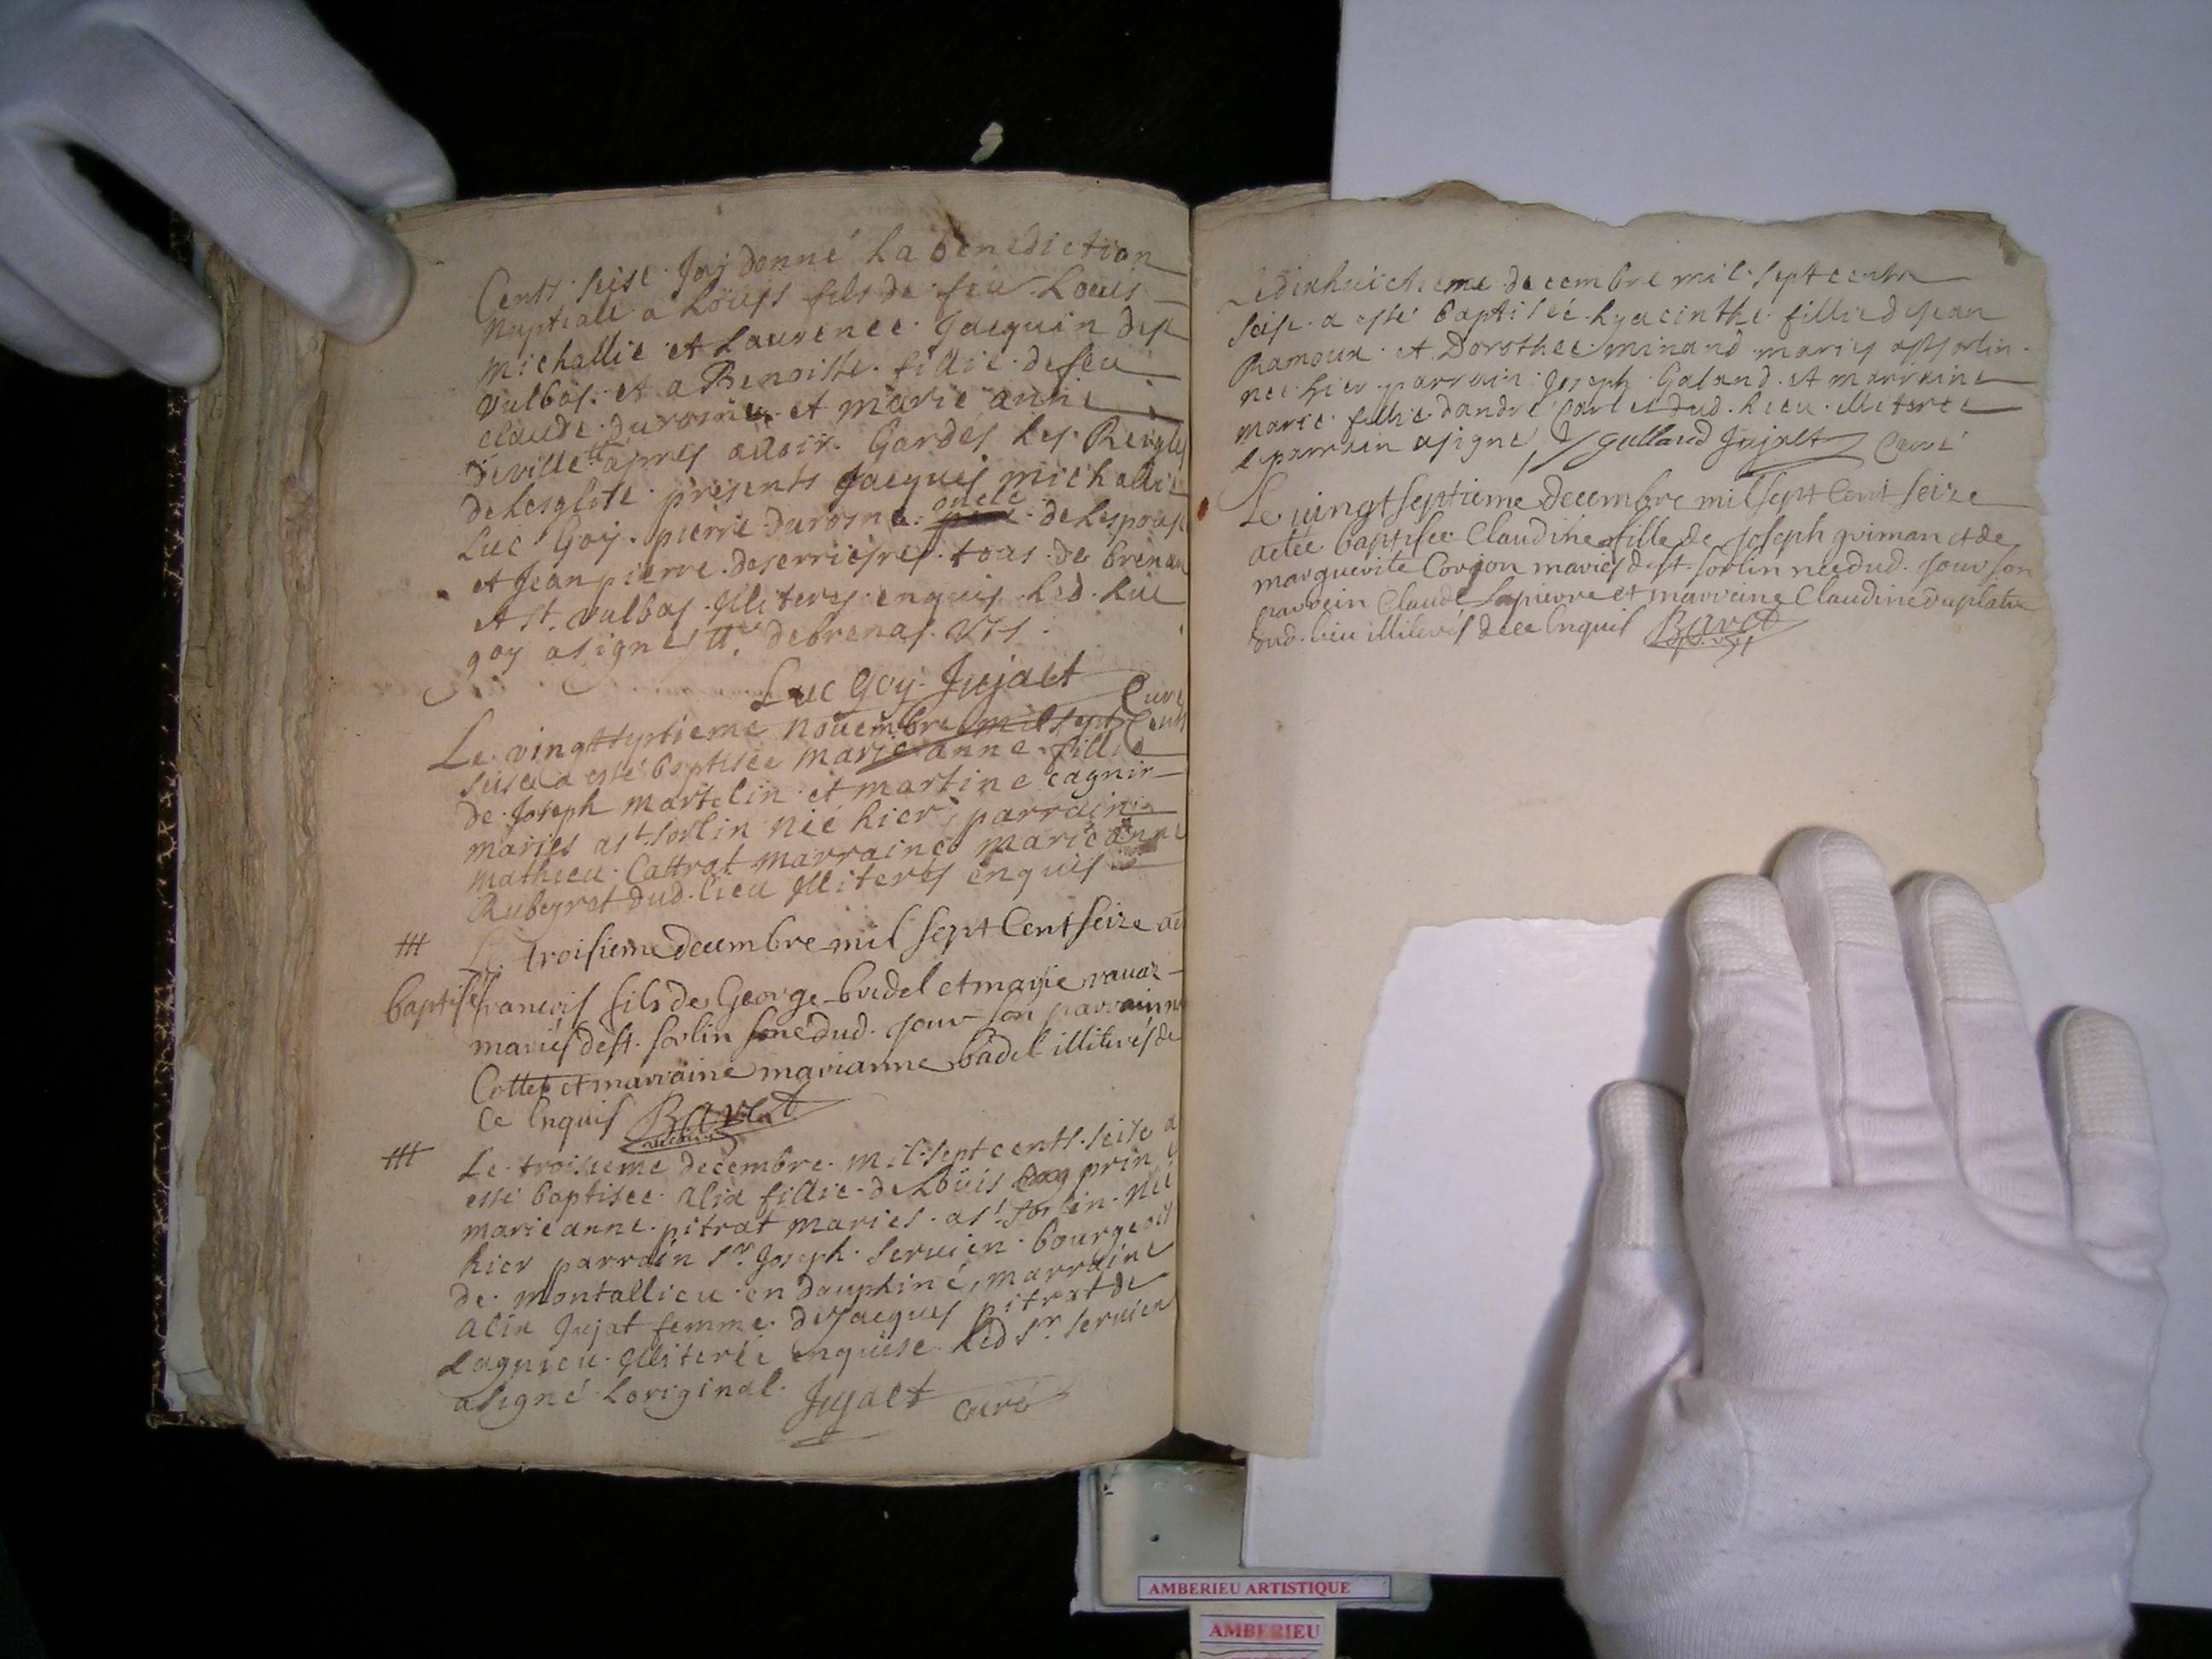 Cents seise Jay donné La benediction
nuptiale a Loüys fils de feu Louis
michallie et Laurence Jacquin de st
Vulbas et a Benoiste fillie de feu
claude durosne et marie anne
apres auoir Gardes les Reigles
de Lesglise presents Jacques michallie
Luc Goy pierre durosne oncle de Lespouse
et Jean pierre deserrieres tous de brenas
et st. vulbas Illiteres enquis Led. Luc
goy a signé de brenas
Luc Goy Jujalt Curé
Le vingtseptieme nouembre mil sept Cents
seise a esté baptisée marie anne fillie
de Joseph martelin et martine cagnin
maries a st sorlin née hier parrain
mathieu Cattrat marraine marie anne
Rubeyret dud. lieu Illiterés enquis
Le troisieme decembre mil sept Cent seize a été
baptisé francois fils de George badel et marie
mariés de st. sorlin né dud. jour son parrain
Cottet et marraine marianne badel illiterés de
ce Enquis Baret
Le troisieme decembre mil sept cents seise a
esté baptisee alix fillie de Loüis prin
marie anne pitrat maries a st sorlin née
hier parrain sr. Joseph seruien bourgeois
de montallieu en dauphiné, marraine
alix Jujat femme de Jacques pitrat de
Lagnieu Illiterée enquise Led sr seruien
a signé Loriginal. Jujalt curé
Le dixhuictieme decembre mil sept cents
seise a esté baptisée hyacinthe fillie de Jean
Ramoux et Dorothee minand maries a st sorlin
née hier parrain Joseph Galand et marraine
marie fillie dandré dud. Lieu Illiteree
le parrain a signé J galland Jujalt Curé
Le vingt septieme decembre mil sept Cent seize
a étée baptisée Claudine fille de joseph griman et de
marguerite Corjon mariés de st. sorlin née dud. jour son
parrein Claude Lapierre et marreine Claudine duplatre
dud. lieu illiterés de ce Enquis Baret
AMBERIEU ARTISTIQUE
AMBERIEU